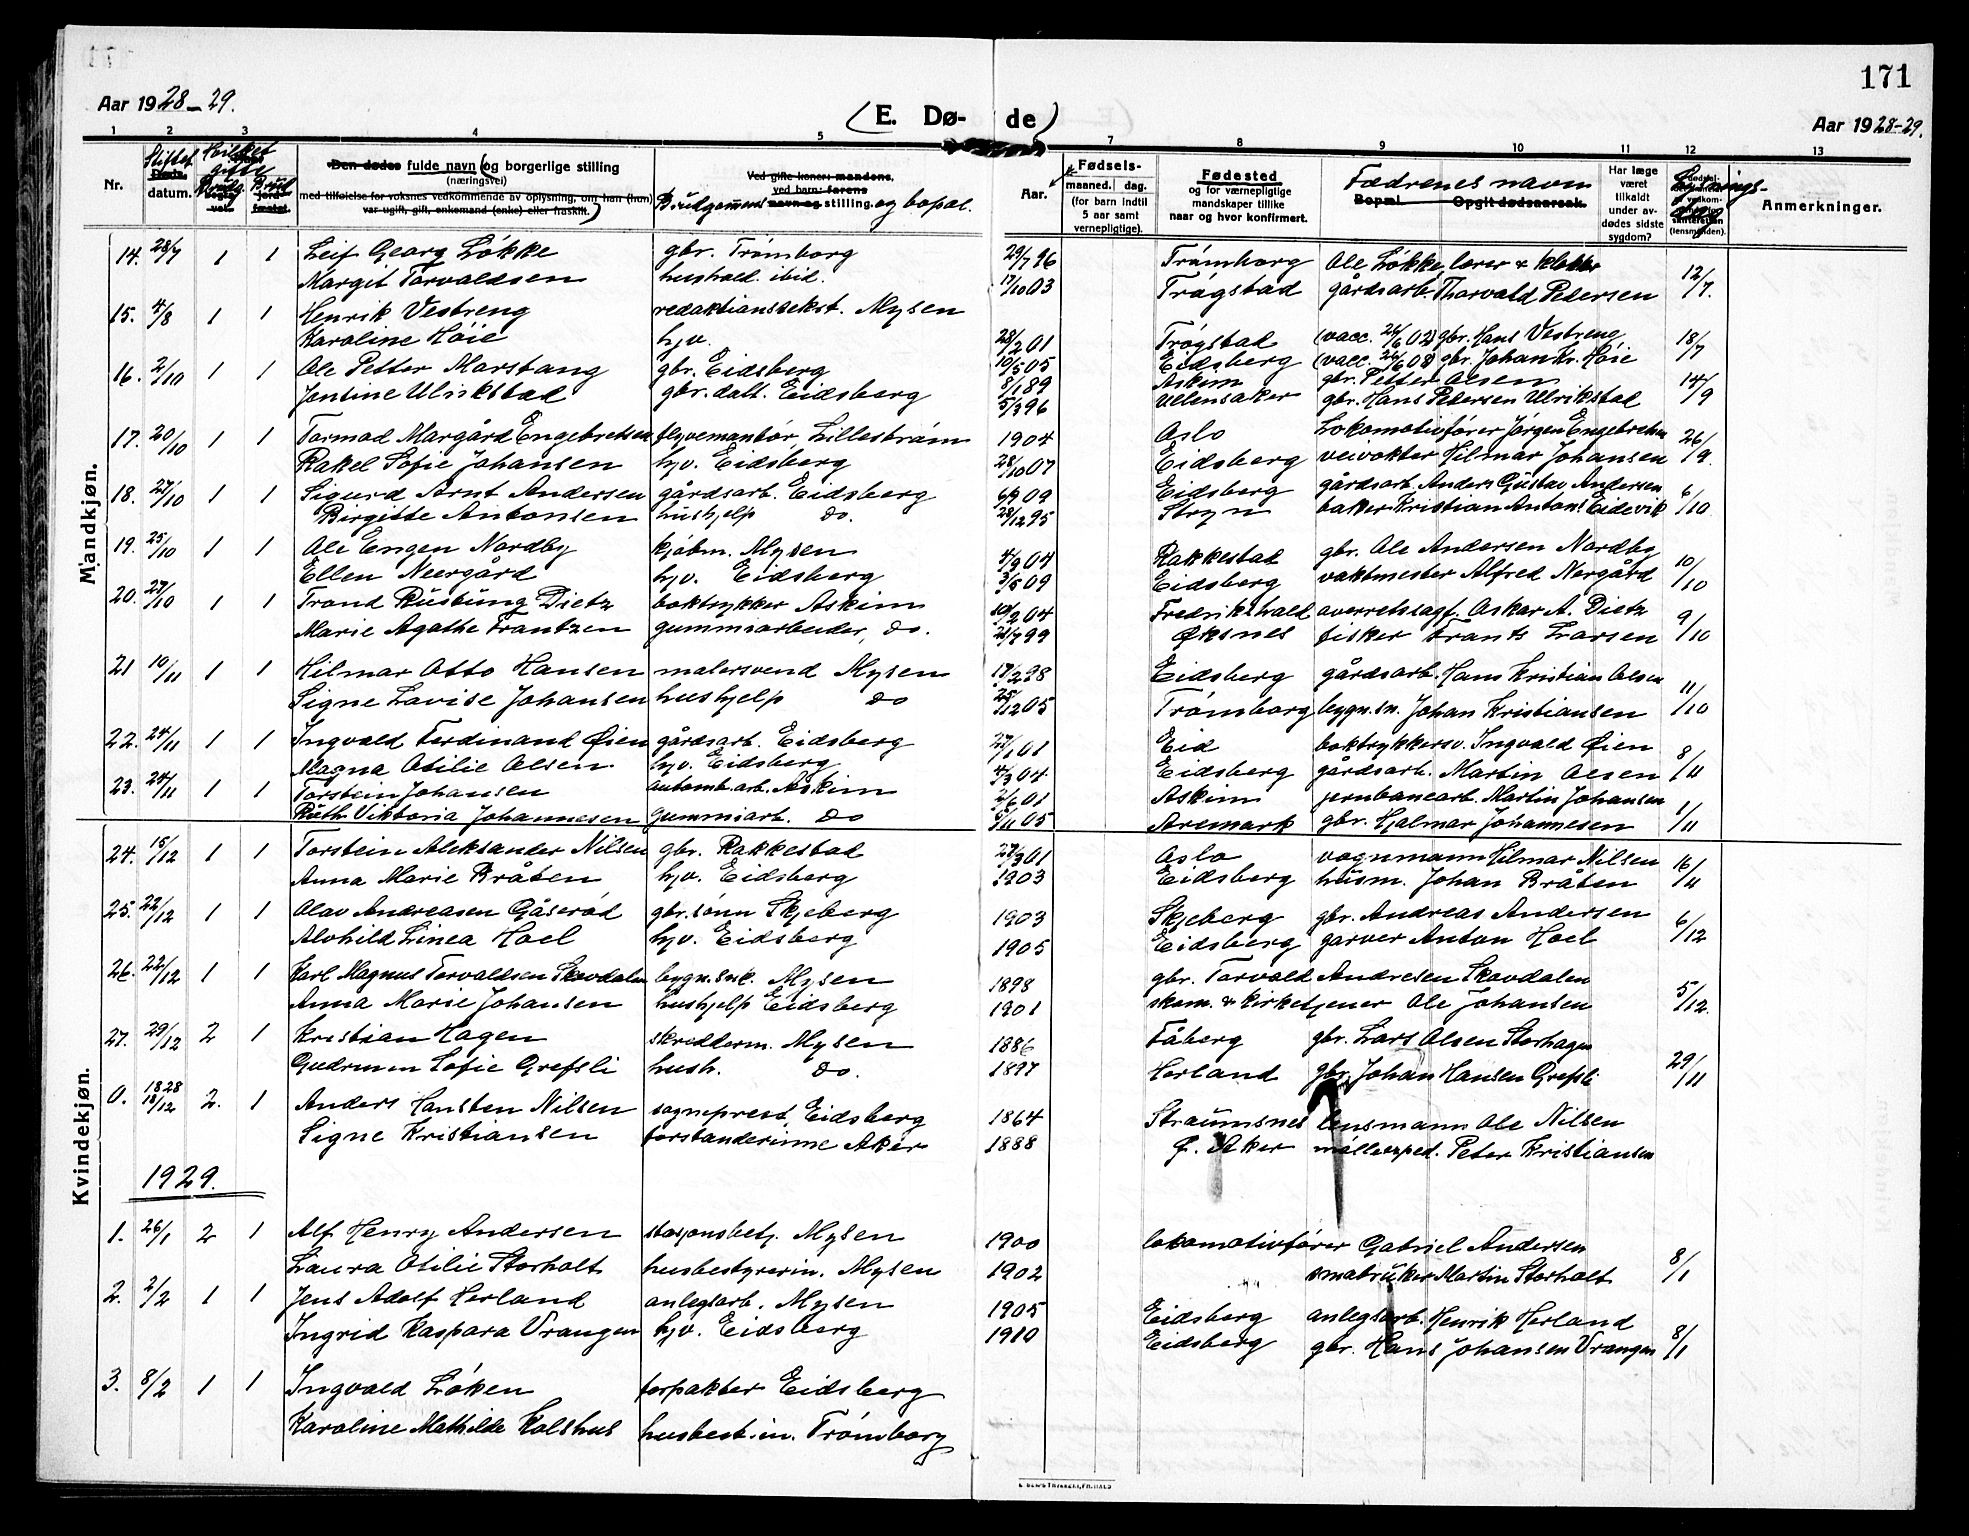 171
Aar 1928-29.
(E. Dø- de)
Aar 1928-29.
1 2 3 4 5 7 8 9 10 11 12 13
Nr.
Stiftet
datum.
Hvilket
gifte
Brudg.
Brud
Den dødes fulde navn (og borgerlige stilling
(næringsvei)
med tilføielse for voksnes vedkommende av oplysning, om han (hun)
var ugift, gift, enkemand (enke) eller fraskilt.)
Ved gifte koner: mandens,
ved barn: farens
Brudgommens navn og stilling. og bopæl.
Aar.
Fødsels-
maaned. dag.
(for barn indtil
5 aar samt
vernepligtige).
Fødested
og for værnepligtige
mandskaper tillike
naar og hvor konfirmert.
Fædrenes navn
Bopæl. Opgit dødsaarsak.
Har læge
været
tilkaldt
under av-
dødes sidste
sygdom?
Lysnings-
dag
(lensmanden).
Anmerkninger.
Mandkjøn.
14. 28/7 1 1 Leif Georg Løkke gbr. Trømborg 29/7 96 Trømborg Ole Løkke, lærer & klokker 12/7.
Margit Torvaldsen hushold. ibid. 17/10 03 Trøgstad gårdsarb. Thorvald Petersen
15. 4/8 1 1 Henrik Vestreng redaktionssekst. Mysen 28/2 01 Trøgstad (vacc. 26/6 02) gbr. Hans Vestreng 18/7
Karoline Høie hjv. 10/5 05 Eidsberg (vacc. 26/6 08) gbr. Johan Kr. Høie
16. 2/10 1 1 Ole Petter Marstang gbr. Eidsberg 8/1 89 Askim gbr. Petter Olsen 14/9
Jensine Ulrikstad gbr. datt. Eidsberg 5/3 96 Ullensaker gbr. Hans Petersen Ulrikstad
17. 20/10 1 1 Tormod Margård Engebretsen flyvemontør, Lillestrøm 1904 Oslo Lokomotivfører Jørgen Engebretsen 26/9.
Rakel Sofie Johansen hjv. Eidsberg 28/10 07 Eidsberg veivokter Hilmar Johansen
18. 27/10 1 1 Sigurd Arnt Andersen gårdsarb. Eidsberg 6/9 09 Eidsberg gårdsarb. Anders Gustav Andersen 6/10
Birgitte Antonsen hushjelp do. 28/12 95 Stryn baker Kristian Antons Eidevik
19. 25/10 1 1 Ole Engen Nordby kjøbm. Mysen 4/9 04 Rakkestad gbr. Ole Andersen Nordby 10/10
Ellen Neergård hjv. Eidsberg 3/5 09 Eidsberg vaktmester Alfred Nergård
20. 27/10 1 1 Trond Rustung Dietz boktrykker Askim 10/2 04 Fredrikshald overretssagf. Oskar A. Dietz 9/10
Marie Agathe Frantzen gummiarbeider, do. 21/7 99 Øksnes fisker Frants Larsen
21 10/11 1 1 Hilmar Otto Hansen malersvend Mysen 17/2 98 Eidsberg gårdsarb. Hans Kristian Olsen 11/10
Signe Lovise Johansen hushjelp do 25/12 05 Trømborg bygn.sn. Johan Kristiansen
22. 24/11 1 1 Ingvald Ferdinand Øien gårdsarb. Eidsberg 27/1 01 Eid boktrykkersv. Ingvald Øien 8/11
Magna Otilie Olsen hjv. Eidsberg 4/3 04 Eidsberg gårdsarb. Martin Olsen
23. 24/11 1 1 Torstein Johansen automb.arb. Askim 2/6 01 Askim jernbanearb. Martin Johansen 1/11
Ruth Viktoria Johannesen gummiarb. do 9/11 05 Aremark gbr. Hjalmar Johannesen
Kvindekjøn.
24. 15/12 1 1 Torstein Aleksander Nilsen gbr. Rakkestad 27/3 01 Oslo vognmann Hilmar Nilsen 16/11
Anna Marie Bråten hjv. Eidsberg 1903 Eidsberg husm. Johan Bråten
25. 22/12 1 1 Olav Andreasen Gåserød gbr. sønn Skjeberg 1903 Skjeberg gbr. Andreas Andersen 6/12
Alvhild Linea Hoel hjv. Eidsberg 1905 Eidsberg garver Anton Hoel
26. 22/12 1 1 Karl Magnus Torvaldsen Skovdalen bygn.snk. Mysen 1898 gbr. Torvald Andresen Skovdalen 5/12.
Anna Marie Johansen hushjelp Eidsberg 1901 skom. & kirketjener Ole Johansen
27. 29/12 2 1 Kristian Hagen skredderm. Mysen 1886 Fåberg gbr. Lars Olsen Storhagen 29/11
Gudrun Sofie Grefsli hush. do. 1897 Herland gbr. Johan Hansen Grefsli
0. 1928 18/12 2. 1 Anders Hansten Nilsen sogneprest, Eidsberg 1864 Straumsnes lensmann Ole Nilsen
Signe Kristiansen forstanderinne Aker 1888 Ø. Aker mølleexped. Peter Kristiansen
1929.
1. 26/1 2 1 Alf Henry Andersen stasjonsbetj. Mysen 1900 lokomotivfører Gabriel Andersen 8/1
Laura Otilie Storholt husbestyrerin. Mysen 1902 småbruker Martin Storholt
2. 2/2 1 1 Jens Adolf Herland anlegsarb. Mysen 1905 Eidsberg anlegsarb. Henrik Herland 8/1
Ingrid Kaspara Vrangen hjv. Eidsberg 1910 Eidsberg gbr. Hans Johansen Vrangen
3. 8/2 1 1 Ingvald Løken forpakter Eidsberg
Karoline Mathilde Kolshus husbest.in. Trømborg